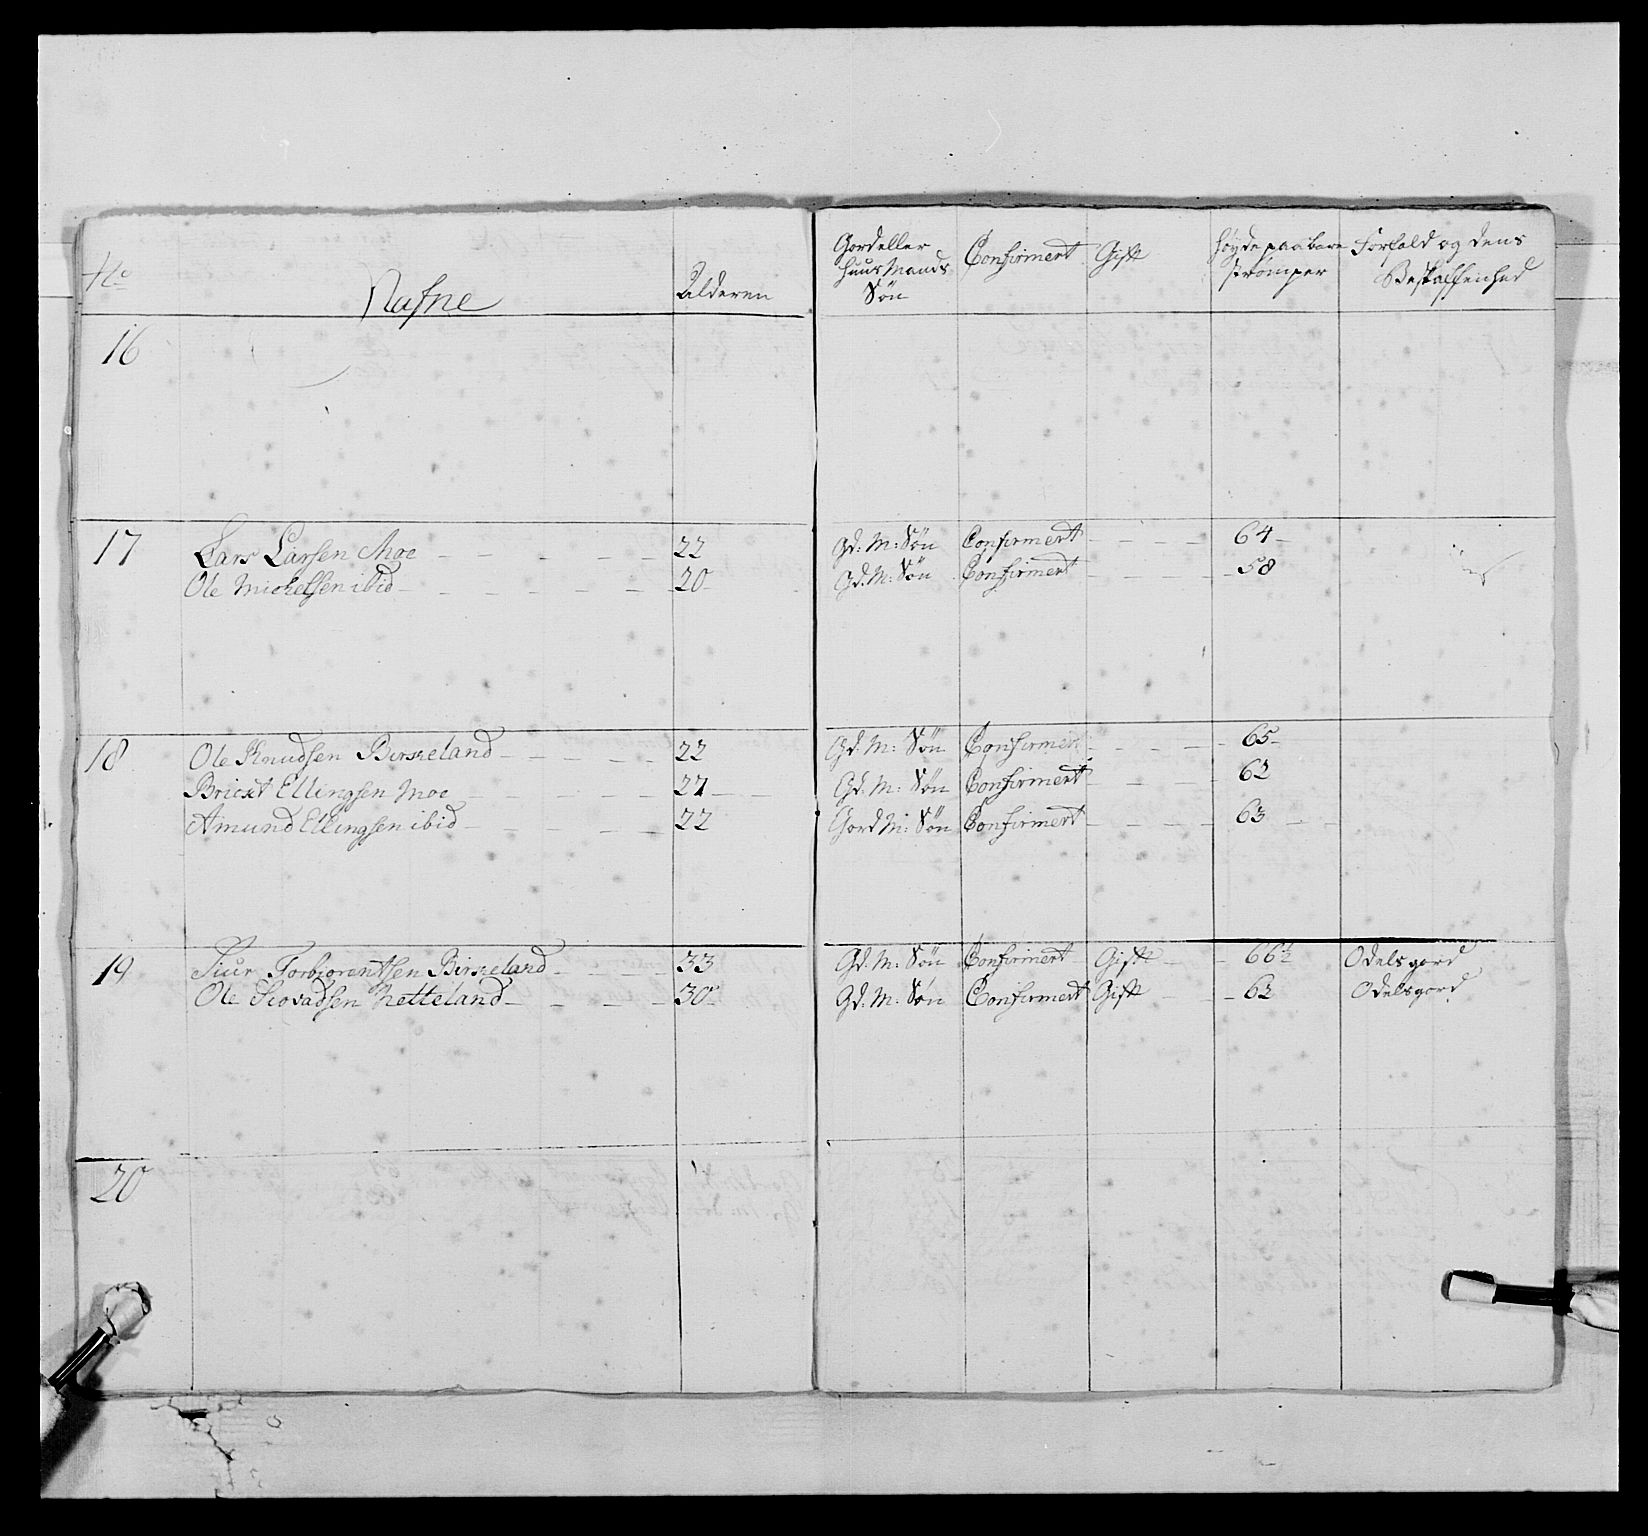 No
Nafne
Alderen
Gord eller
huus Mands
Søn
Confirmert
Gift
høyde paa bare
strømper
Forfald og dens
Beskaffenhed
16
17 Lars Larsen Moe 22 Gd: M: Søn Confirmert 64
Ole Michelsen ibid 20 Gd: M: Søn Confirmert 58
18 Ole Knudsen Birkeland 22 Gd: M: Søn Confirmert 65
Brickt Ellingsen Moe 27 Gd: M: Søn Confirmert 62
Amund Ellingsen ibid 22 Gord M: Søn Confirmert 63
19 Siur Torbiørentsen Birkeland 33 Gd: M: Søn Confirmert Gift 66½ Odelsgord
Ole Netteland 30 Gd: M: Søn Confirmert Gift 62 Odelsgord
20